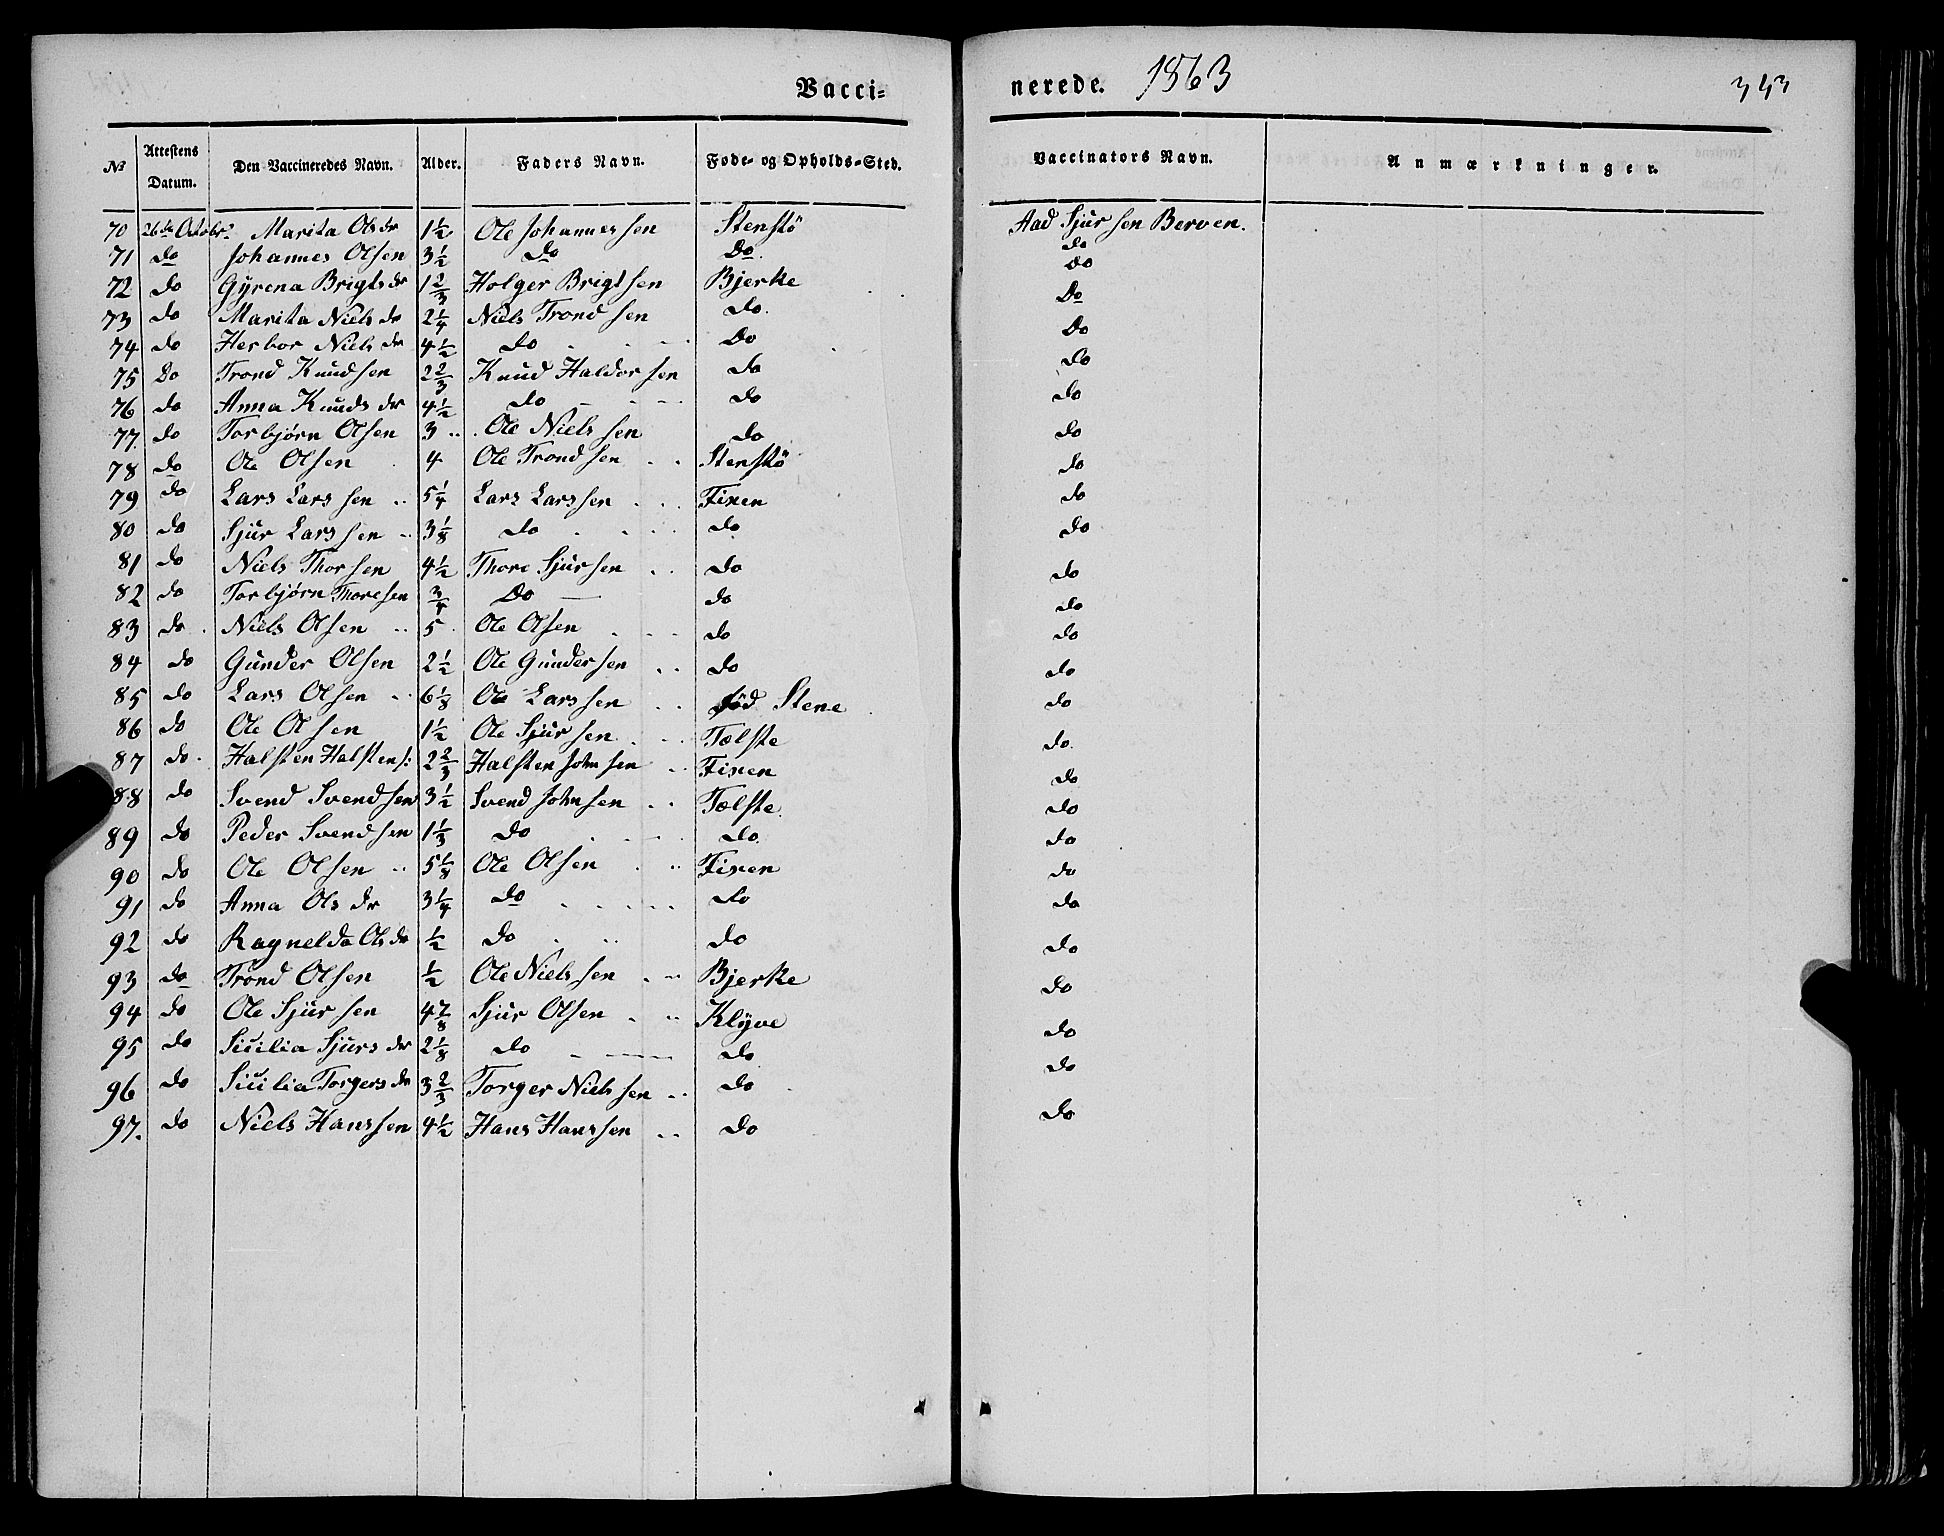 Vacci- nerede. 1863 343
№ Attestens Datum. Den Vaccineredes Navn. Alder. Faders Navn. Føde- og Opholds-Sted. Vaccinators Navn. Anmærkninger.
70 26de Octobr Marita Olsdr 1½ Ole Johannessen Stenstö Aad Sjursen Berven.
71 do Johannes Olsen 3½ do Do. do
72 do Gyrena Brigtsdr 1⅔ Holger Brigtsen Bjerke Do
73 do Marita Nielsdr 2¼ Niels Trondsen do. Do
74 do Herbor Nielsdr 4½ do Do Do
75 Do Trond Knudsen 2⅔ Knud Haldorsen do do
76 do Anna Knudsdr 4½ do do do
77. do Torbjørn Olsen 3 Ole Nielssen do do
78 do Ole Olsen 4 Ole Trondsen Stenstö do
79 do Lars Larssen 5¼ Lars Larssen Fixen do
80 do Sjur Larssen 3⅛ do do do
81 do Niels Thorsen 4½ Thore Sjursen do do
82 do Torbjørn Thoresen ¾ Do do do
83 do Niels Olsen 5 Ole Olsen do do
84 do Gunder Olsen 2½ Ole Gundersen do do
85 do Lars Olsen 6⅛ Ole Larssen fød Stene do
86 do Ole Olsen 1½ Ole Sjursen Tælste do
87 do Halsten Halstens: 2⅔ Halsten Johnsen Fixen do
88 do Svend Svendsen 3½ Svend Johnsen Tælste do
89 do Peder Svendsen 1⅓ do do. do
90 do Ole Olsen 5⅛ Ole Olsen Fixen do
91 do Anna Olsdr 3¼ do do do
92 do Ragnelda Olsdr ½ do do do
93 do Trond Olsen ½ Ole Nielssen Bjerke do
94 do Ole Sjursen 4⅞ Sjur Olsen Klyve do
95 do Sicilia Sjursdr 2⅛ do do do
96 do Sicilia Torgersdr 3⅔ Torger Nielssen do do
97. do Niels Hanssen 4½ Hans Hanssen do do